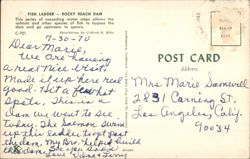 FISH LADDER - ROCKY REACH DAM
This series of cascading water steps allows the
salmon and other species of fish to bypass the
dam and go upstream to spawn.
C-701
7-30-70
Dear Marie,
We are having
a real nice visit.
Made it up here real
good. Hit a few hot
spots. This is a
dam we went to see
today. The Salmon swim
up this ladder to get past
the dam. My Bro. helped build
the dam. See you soon
Love Vona & Jerry
POST CARD
Address
Mrs Marie Samwell
2831 Corning St.
Los Angeles, Calif.
90034